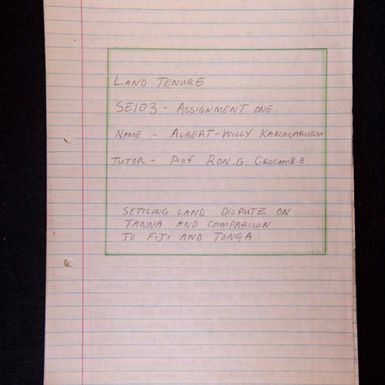 LAND TENURE
SE103 - ASSIGNMENT ONE
NAME - ALBERT-WILLY KARLOSARURU
TUTOR - Prof RON.G CROCOMB.E
SETTLING LAND DISPUTE ON
TANNA AND COMPARISON
TO FIJI AND TONGA.